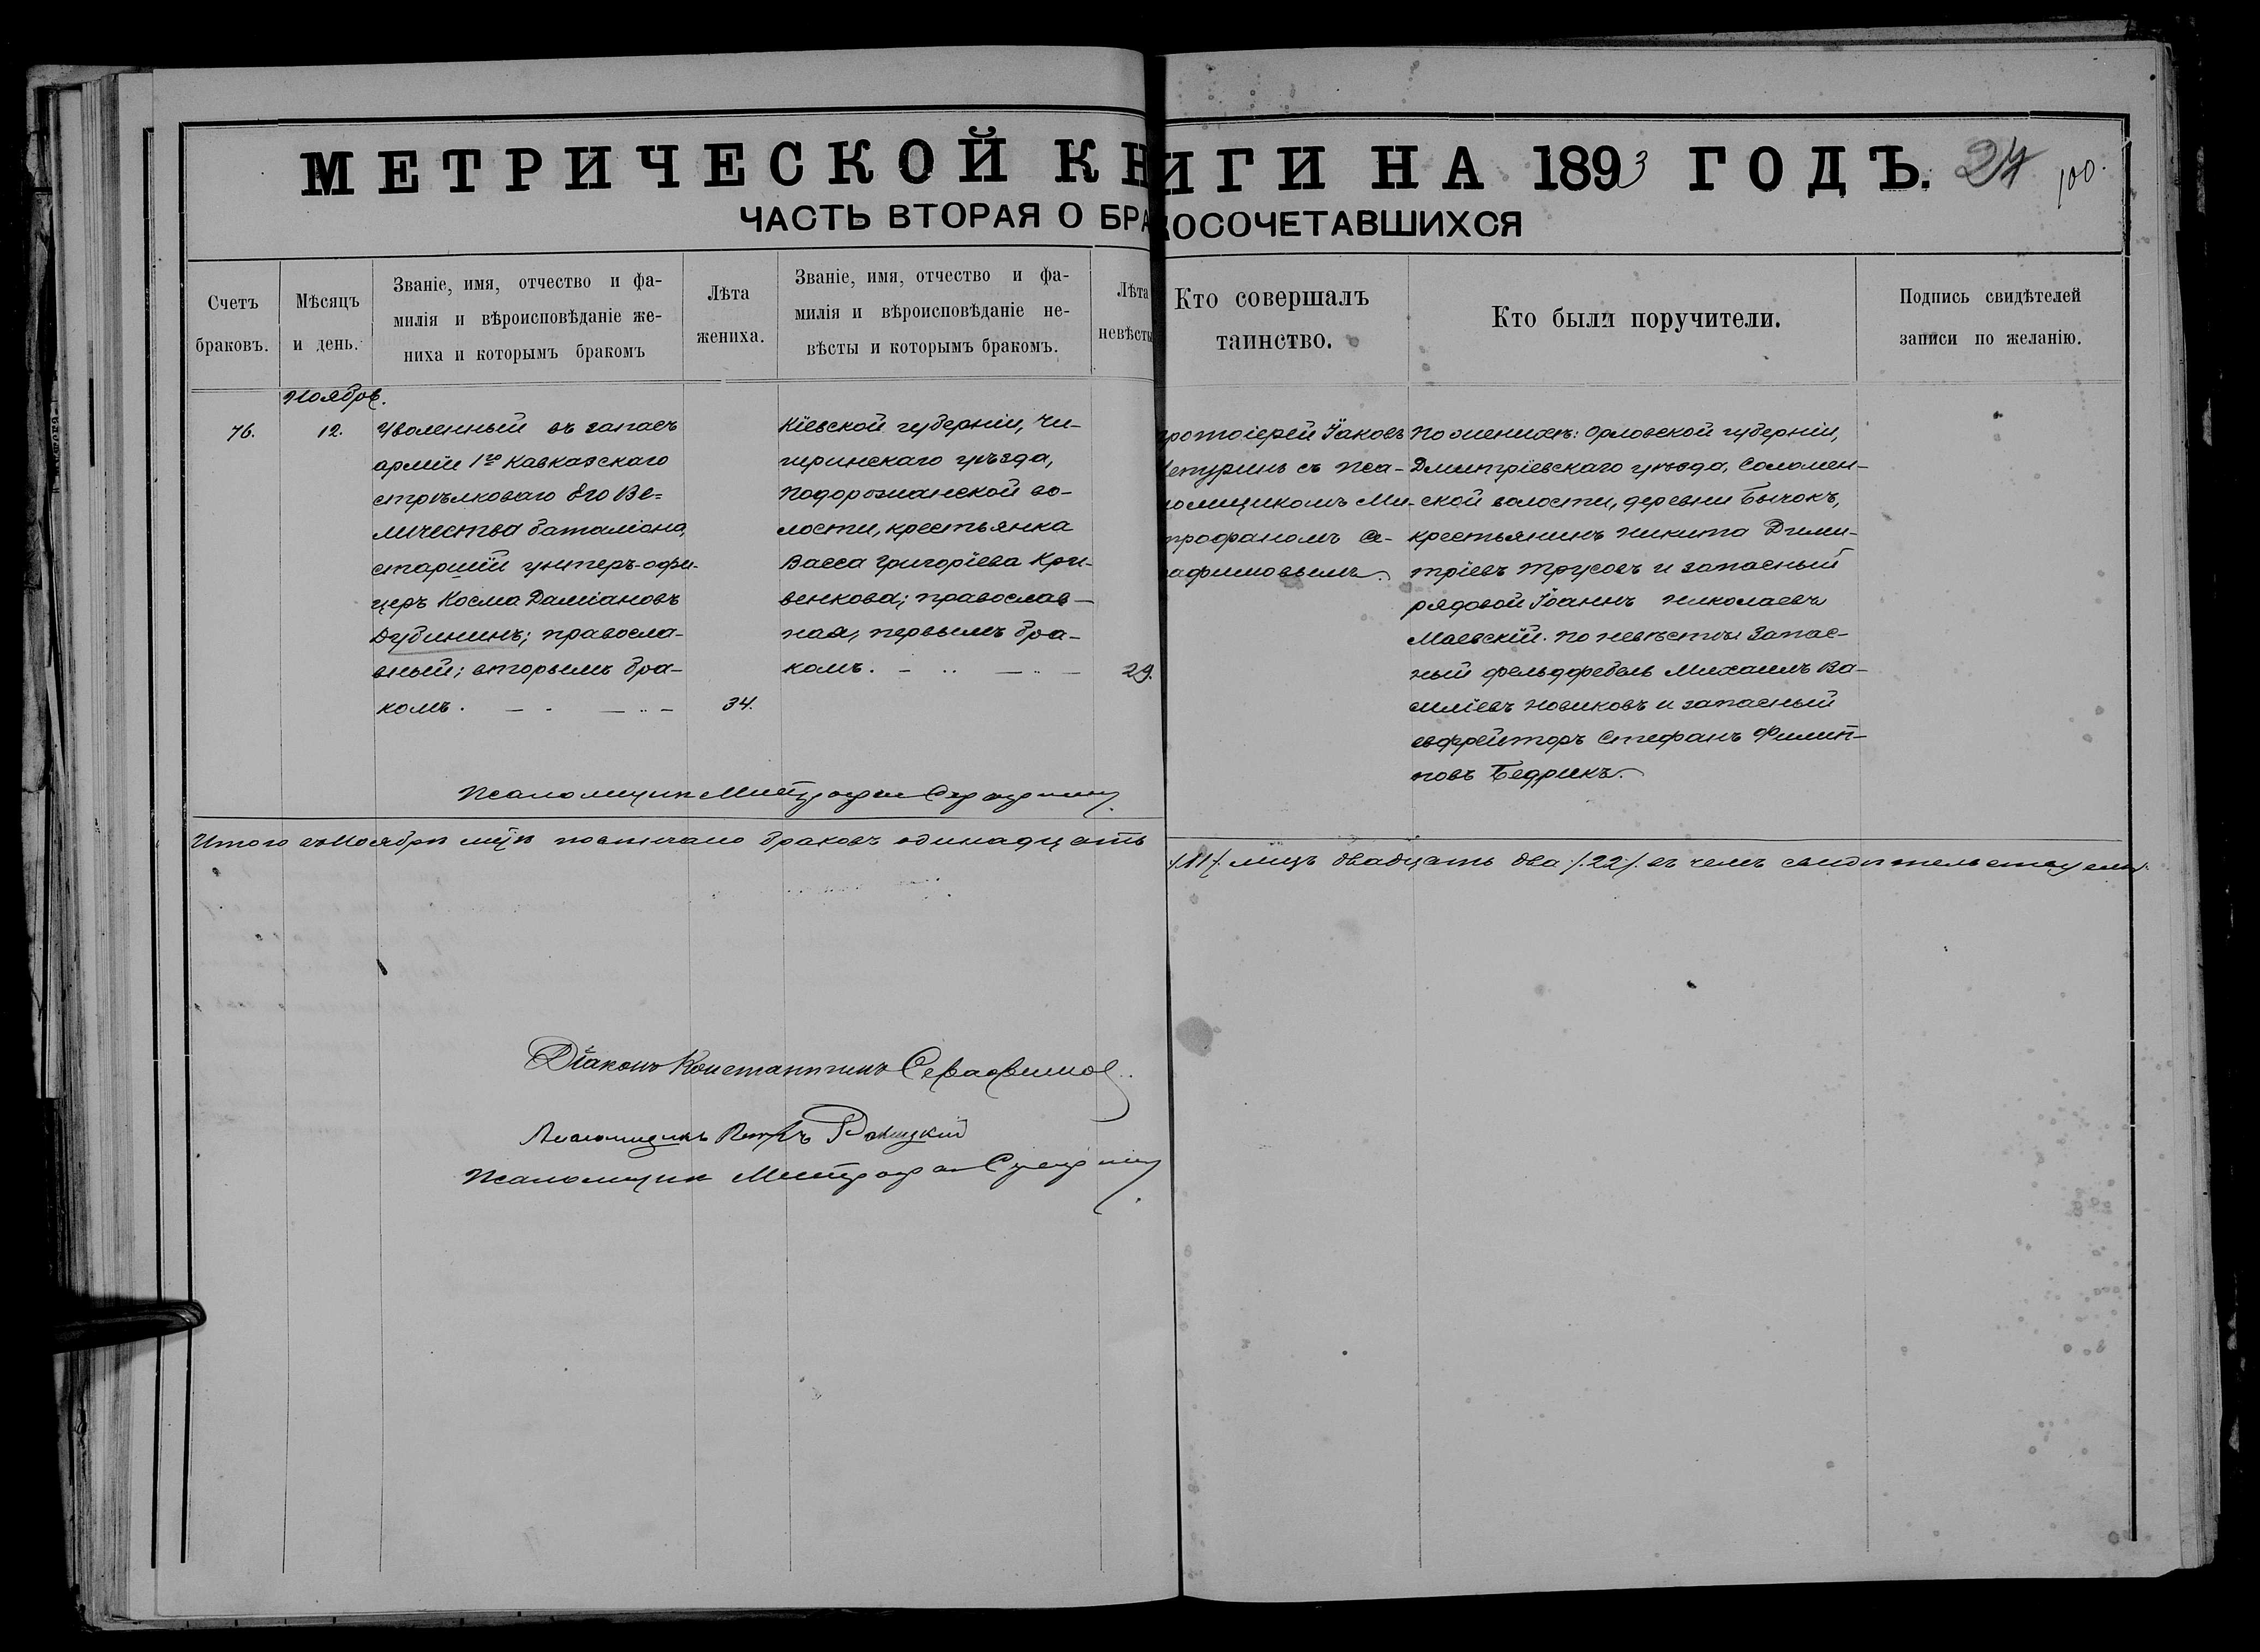 МЕТРИЧЕСКОЙ КНИГИ НА 1893 ГОДЪ. 24 100.
ЧАСТЬ ВТОРАЯ О БРАКОСОЧЕТАВШИХСЯ
Счетъ
браковъ.
Мѣсяцъ
и день.
Званіе, имя, отчество и фа-
милія и вѣроисповѣданіе же-
ниха и которымъ бракомъ
Лѣта
жениха.
Званіе, имя, отчество и фа-
милія и вѣроисповѣданіе не-
вѣсты и которымъ бракомъ.
Лѣта
невѣсты
Кто совершалъ
таинство.
Кто были поручители.
Подпись свидѣтелей
записи по желанію.
Ноябрь.
76.
12.
Уволенный въ запасъ
арміи 1го Кавказскаго
стрѣлковаго Его Ве-
личества баталіона,
старшій унтеръ-офи-
церъ Косма Даміановъ
Дубининъ; правосла-
вный; вторымъ бра-
комъ.
34.
Кіевской губерніи, Чи-
гиринскаго уѣзда,
Подорожнянской во-
лости, крестьянка
Васса Григоріева Кри-
венкова; православ-
ная, первымъ бра-
комъ.
29.
ротоіерей Іаковъ
етуринъ съ Пса-
ломщикомъ Ми-
трофаномъ Се-
рафимовымъ.
По женихѣ: Орловской губерніи,
Дмитріевскаго уѣзда, Соломен-
ской волости, деревни Бычокъ,
крестьянинъ Никита Дими-
тріевъ Трусовъ и запасный
рядовой Іоаннъ Николаевъ
Маевскій. По невѣстѣ: Запас-
ный фельдфебель Михаилъ Ва-
силіевъ Новиковъ и запасный
ефрейторъ Стефанъ Филип-
повъ Бедрикъ.
Псаломщик Митрофан Серафимов
Итого въ Ноябрѣ м-цѣ повѣнчано браковъ одинадцать
/.11/. лицъ двадцать два /.22/. въ чемъ свидѣтельствуемъ:
Діаконъ Константинъ Серафимов.
Псаломщикъ Петръ
Псаломщик Митрофан Серафимов